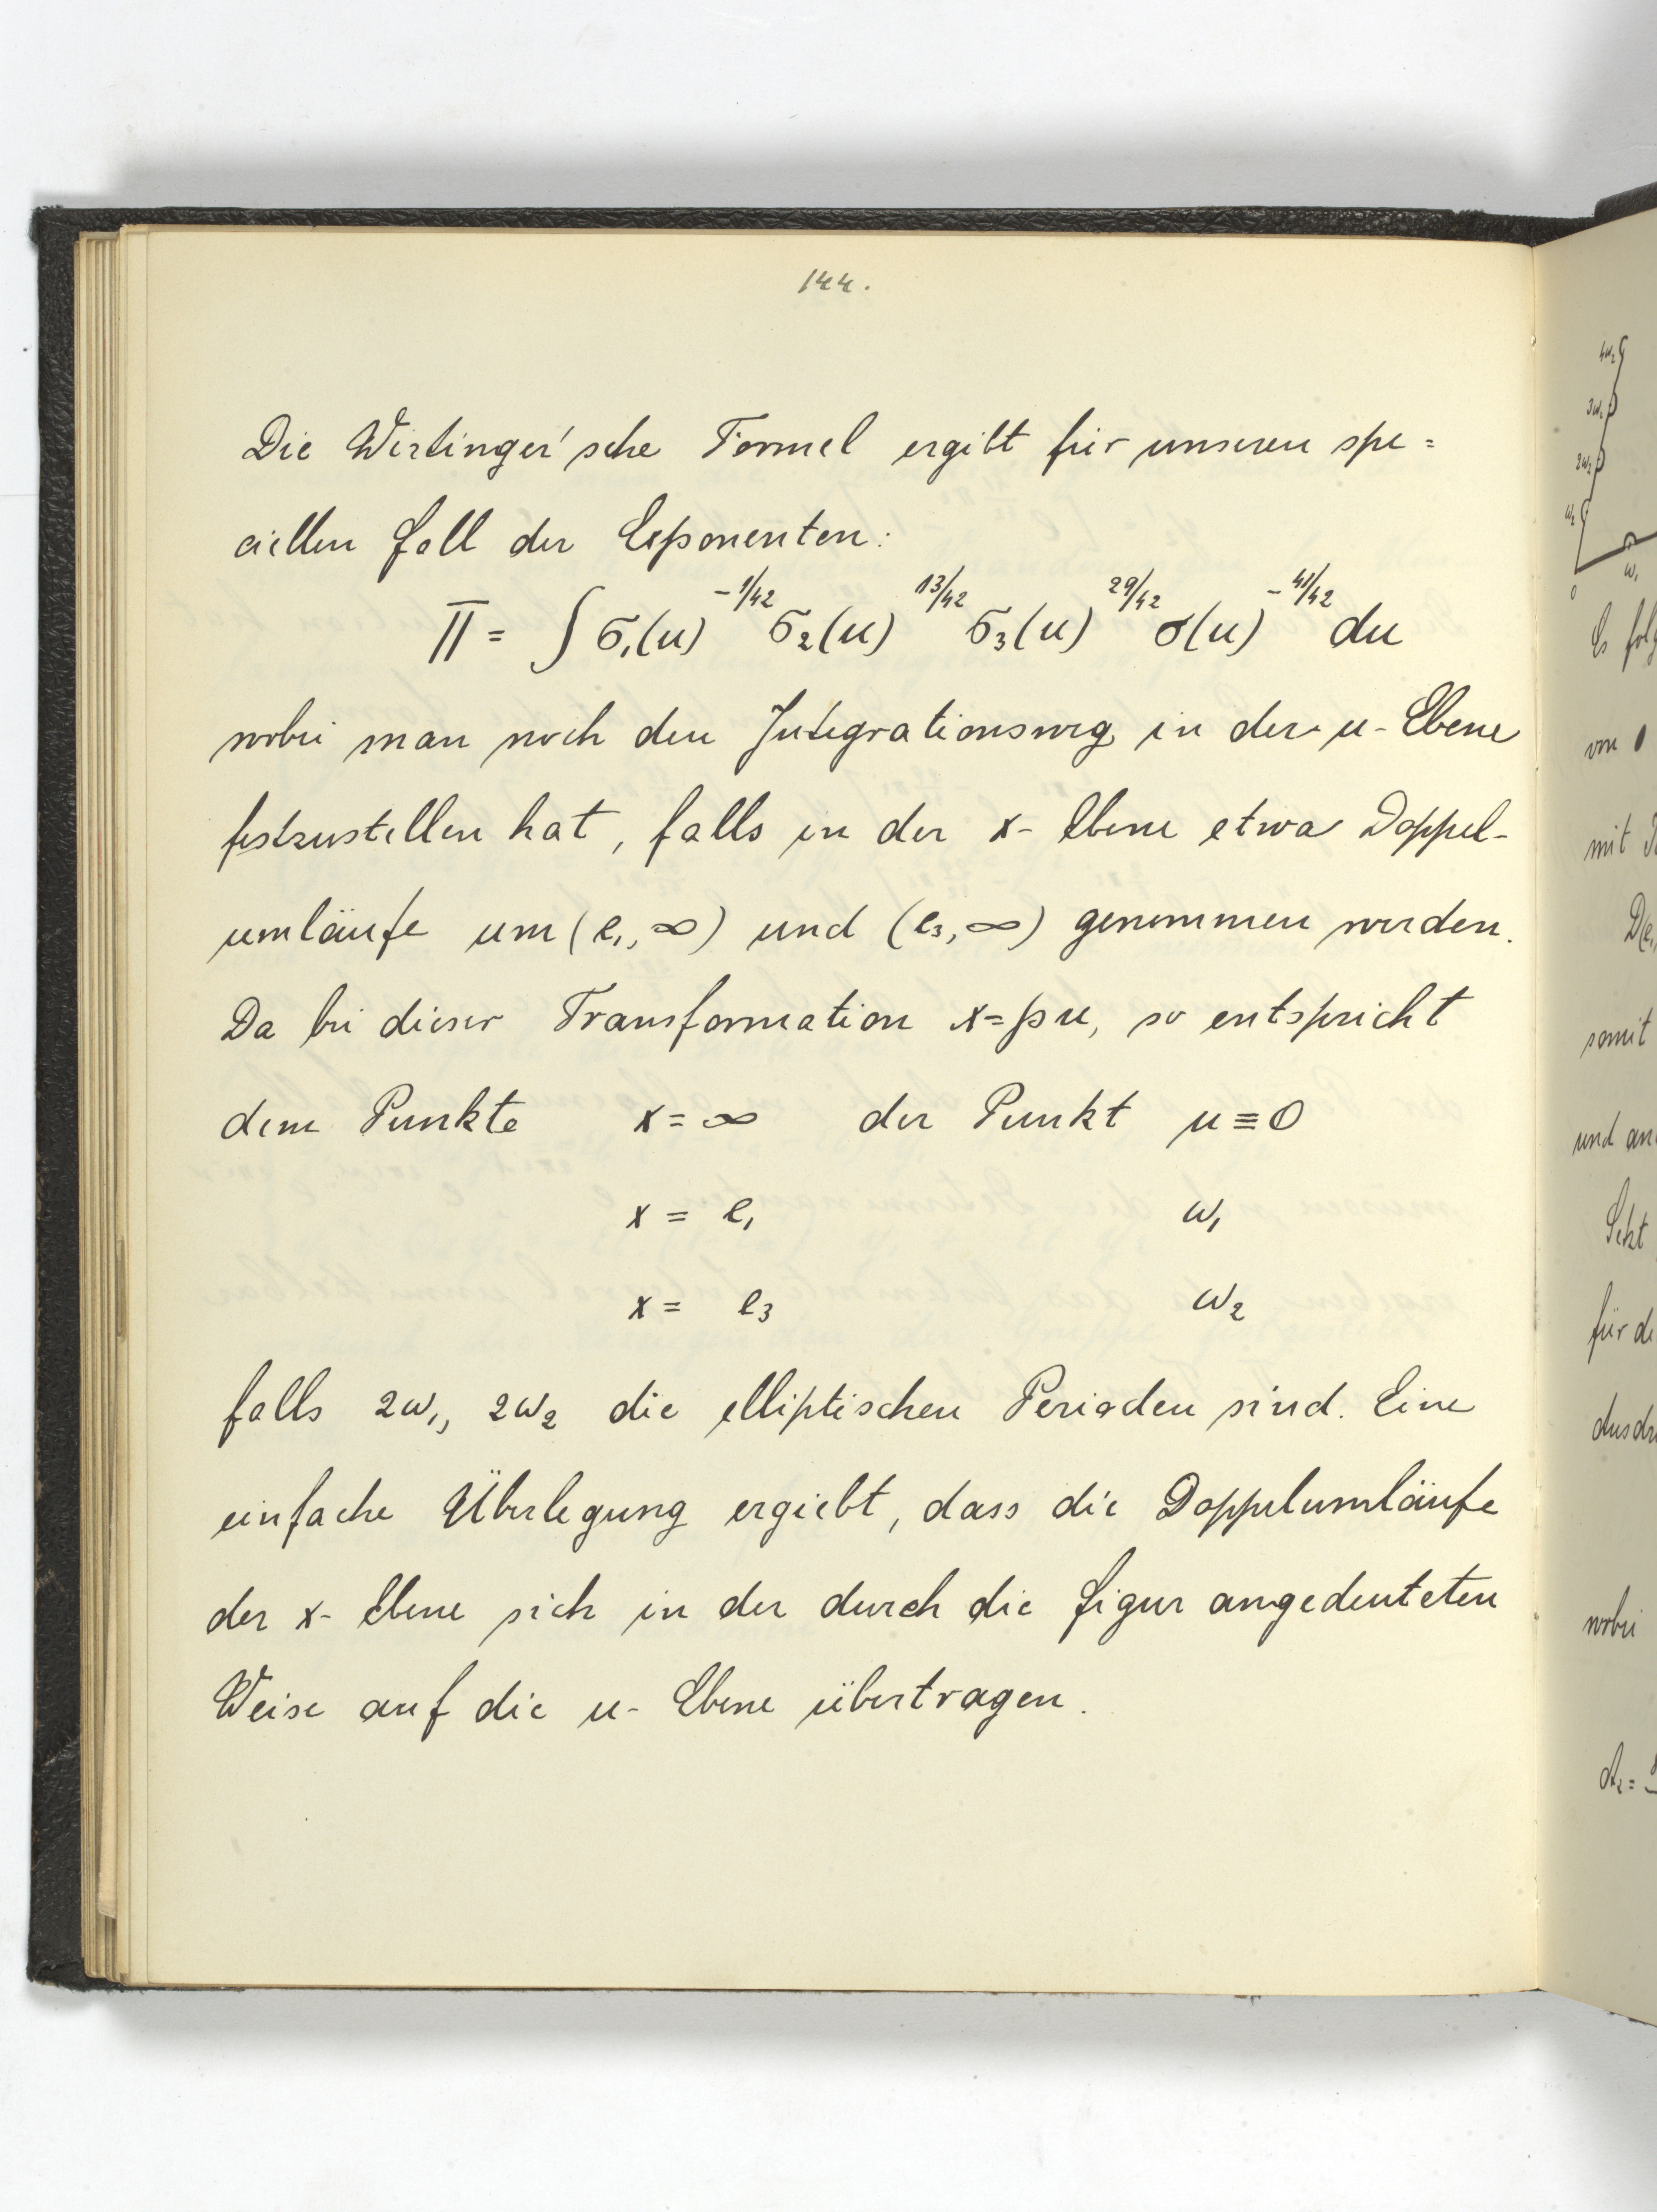 144.
Die Wirtinger'sche Formel ergibt für unseren spe=
ciellen Fall der Exponenten:
Π = ∫ σ₁(u)^{-1/42} σ₂(u)^{13/42} σ₃(u)^{29/42} σ(u)^{-41/42} du
wobei man noch den Integrationsweg in der u-Ebene
festzustellen hat, falls in der x-Ebene etwa Doppel-
umläufe um (e₁, ∞) und (e₃, ∞) genommen werden.
Da bei dieser Transformation x = ℘u, so entspricht
dem Punkte x = ∞ der Punkt u ≡ 0
x = e₁ ω₁
x = e₃ ω₂
falls 2ω₁, 2ω₂ die elliptischen Perioden sind. Eine
einfache Überlegung ergiebt, dass die Doppelumläufe
der x-Ebene sich in der durch die Figur angedeuteten
Weise auf die u-Ebene übertragen.
4ω₂
3ω₂
2ω₂
ω₂
0 ω₁
Es folg
von 0
mit
D(e₁,
somit
und an
Setzt
für di
Ausdr
wobei
A₂ =